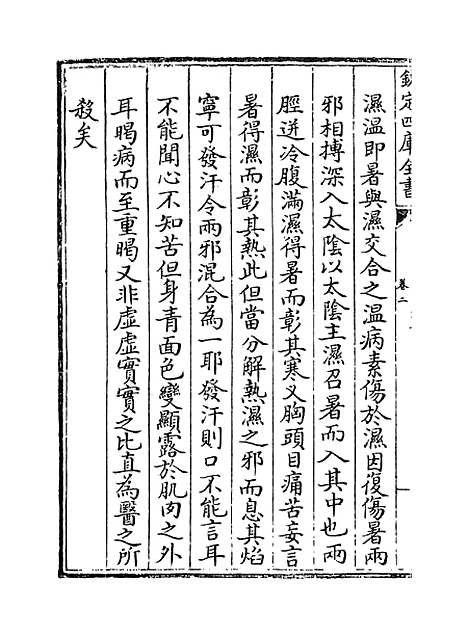 欽定四庫全書
卷二
濕溫即暑與濕交合之溫病素傷於濕因復傷暑兩
邪相搏深入太陰以太陰主濕召暑而入其中也兩
脛逆冷腹滿濕得暑而彰其寒义胸頭目痛苦妄言
暑得濕而彰其熱此但當分解熱濕之邪而息其焰
寧可發汗令兩邪混合為一耶發汗則口不能言耳
不能聞心不知苦但身青面色變顯露於肌肉之外
耳暍病而至重暍又非虛虛實實之比直為醫之所
殺矣